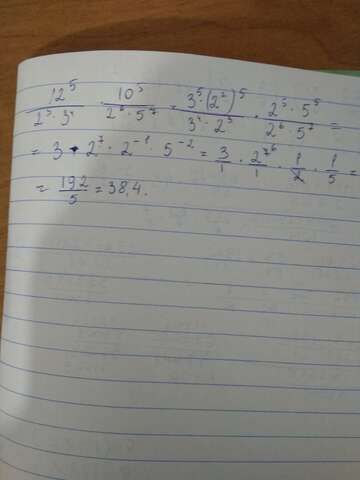 12⁵/(2³·3⁴) · 10⁵/(2⁶·5⁷) = 3⁵·(2²)⁵/(3⁴·2³) · 2⁵·5⁵/(2⁶·5⁷) =
= 3 · 2⁷ · 2⁻¹ · 5⁻² = 3/1 · 2⁷⁶/1 · 1/2 · 1/5 =
= 192/5 = 38,4.